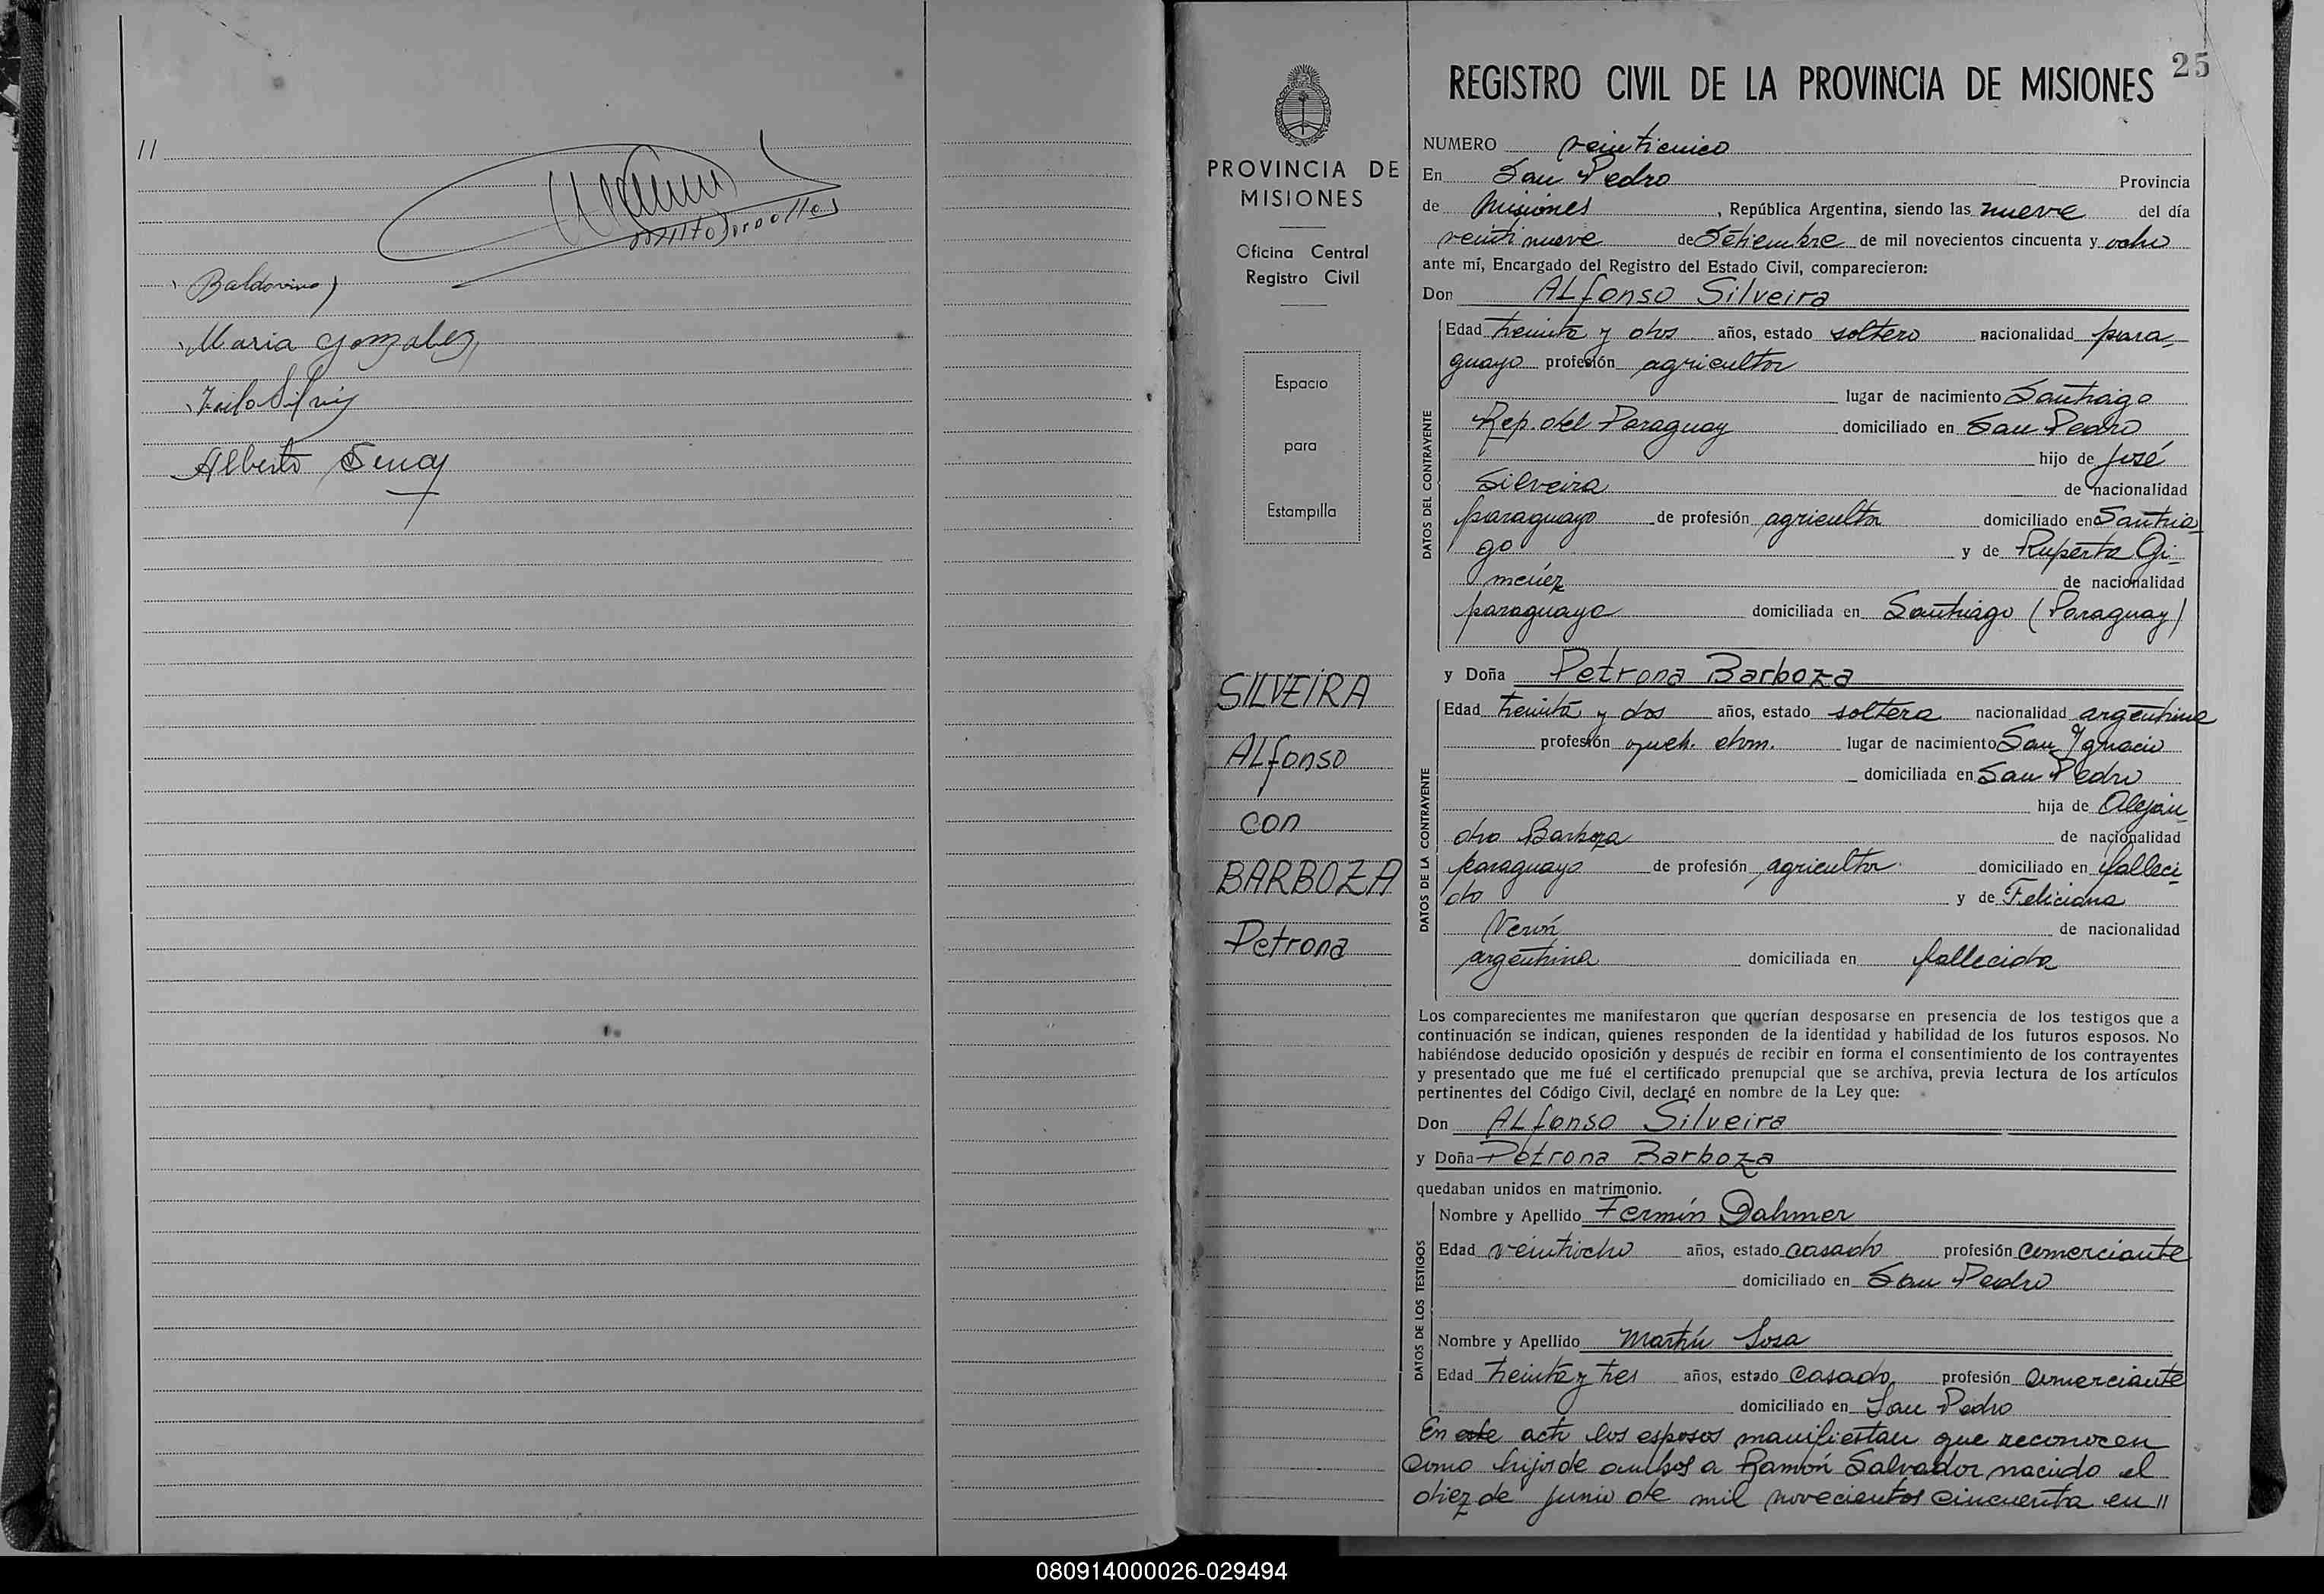 11
Baldovino
Maria Gonzalez
Alberto
25
REGISTRO CIVIL DE LA PROVINCIA DE MISIONES
PROVINCIA DE
MISIONES
Oficina Central
Registro Civil
Espacio
para
Estampilla
SILVEIRA
ALfonso
con
BARBOZA
Petrona
NUMERO veinticinco
En San Pedro Provincia
de Misiones, República Argentina, siendo las nueve del día
veintinueve de Setiembre de mil novecientos cincuenta y ocho
ante mí, Encargado del Registro del Estado Civil, comparecieron:
Don ALfonso Silveira
DATOS DEL CONTRAYENTE
Edad treinta y dos años, estado soltero nacionalidad para-
guayo profesión agricultor
lugar de nacimiento Santiago
Rep. del Paraguay domiciliado en San Pedro
hijo de José
Silveira de nacionalidad
paraguayo de profesión agricultor domiciliado en Santia-
go y de Ruperta Gi-
menéz de nacionalidad
paraguaya domiciliada en Santiago (Paraguay)
y Doña Petrona Barboza
DATOS DE LA CONTRAYENTE
Edad treinta y dos años, estado soltera nacionalidad argentina
profesión dom. lugar de nacimiento San Ignacio
domiciliada en San Pedro
hija de Alejan-
dro Barboza de nacionalidad
paraguayo de profesión agricultor domiciliado en falleci-
do y de Feliciana
Verón de nacionalidad
argentina domiciliada en fallecida
Los comparecientes me manifestaron que querían desposarse en presencia de los testigos que a
continuación se indican, quienes responden de la identidad y habilidad de los futuros esposos. No
habiéndose deducido oposición y después de recibir en forma el consentimiento de los contrayentes
y presentado que me fué el certificado prenupcial que se archiva, previa lectura de los artículos
pertinentes del Código Civil, declaré en nombre de la Ley que:
Don ALfonso Silveira
y Doña Petrona Barboza
quedaban unidos en matrimonio.
DATOS DE LOS TESTIGOS
Nombre y Apellido Fermín Dahmer
Edad veintiocho años, estado casado profesión comerciante
domiciliado en San Pedro
Nombre y Apellido Martín Sosa
Edad treinta y tres años, estado casado profesión comerciante
domiciliado en San Pedro
En este acto los esposos manifiestan que reconocen
como hijos de ambos a Ramón Salvador nacido el
diez de junio de mil novecientos cincuenta en 11
080914000026-029494